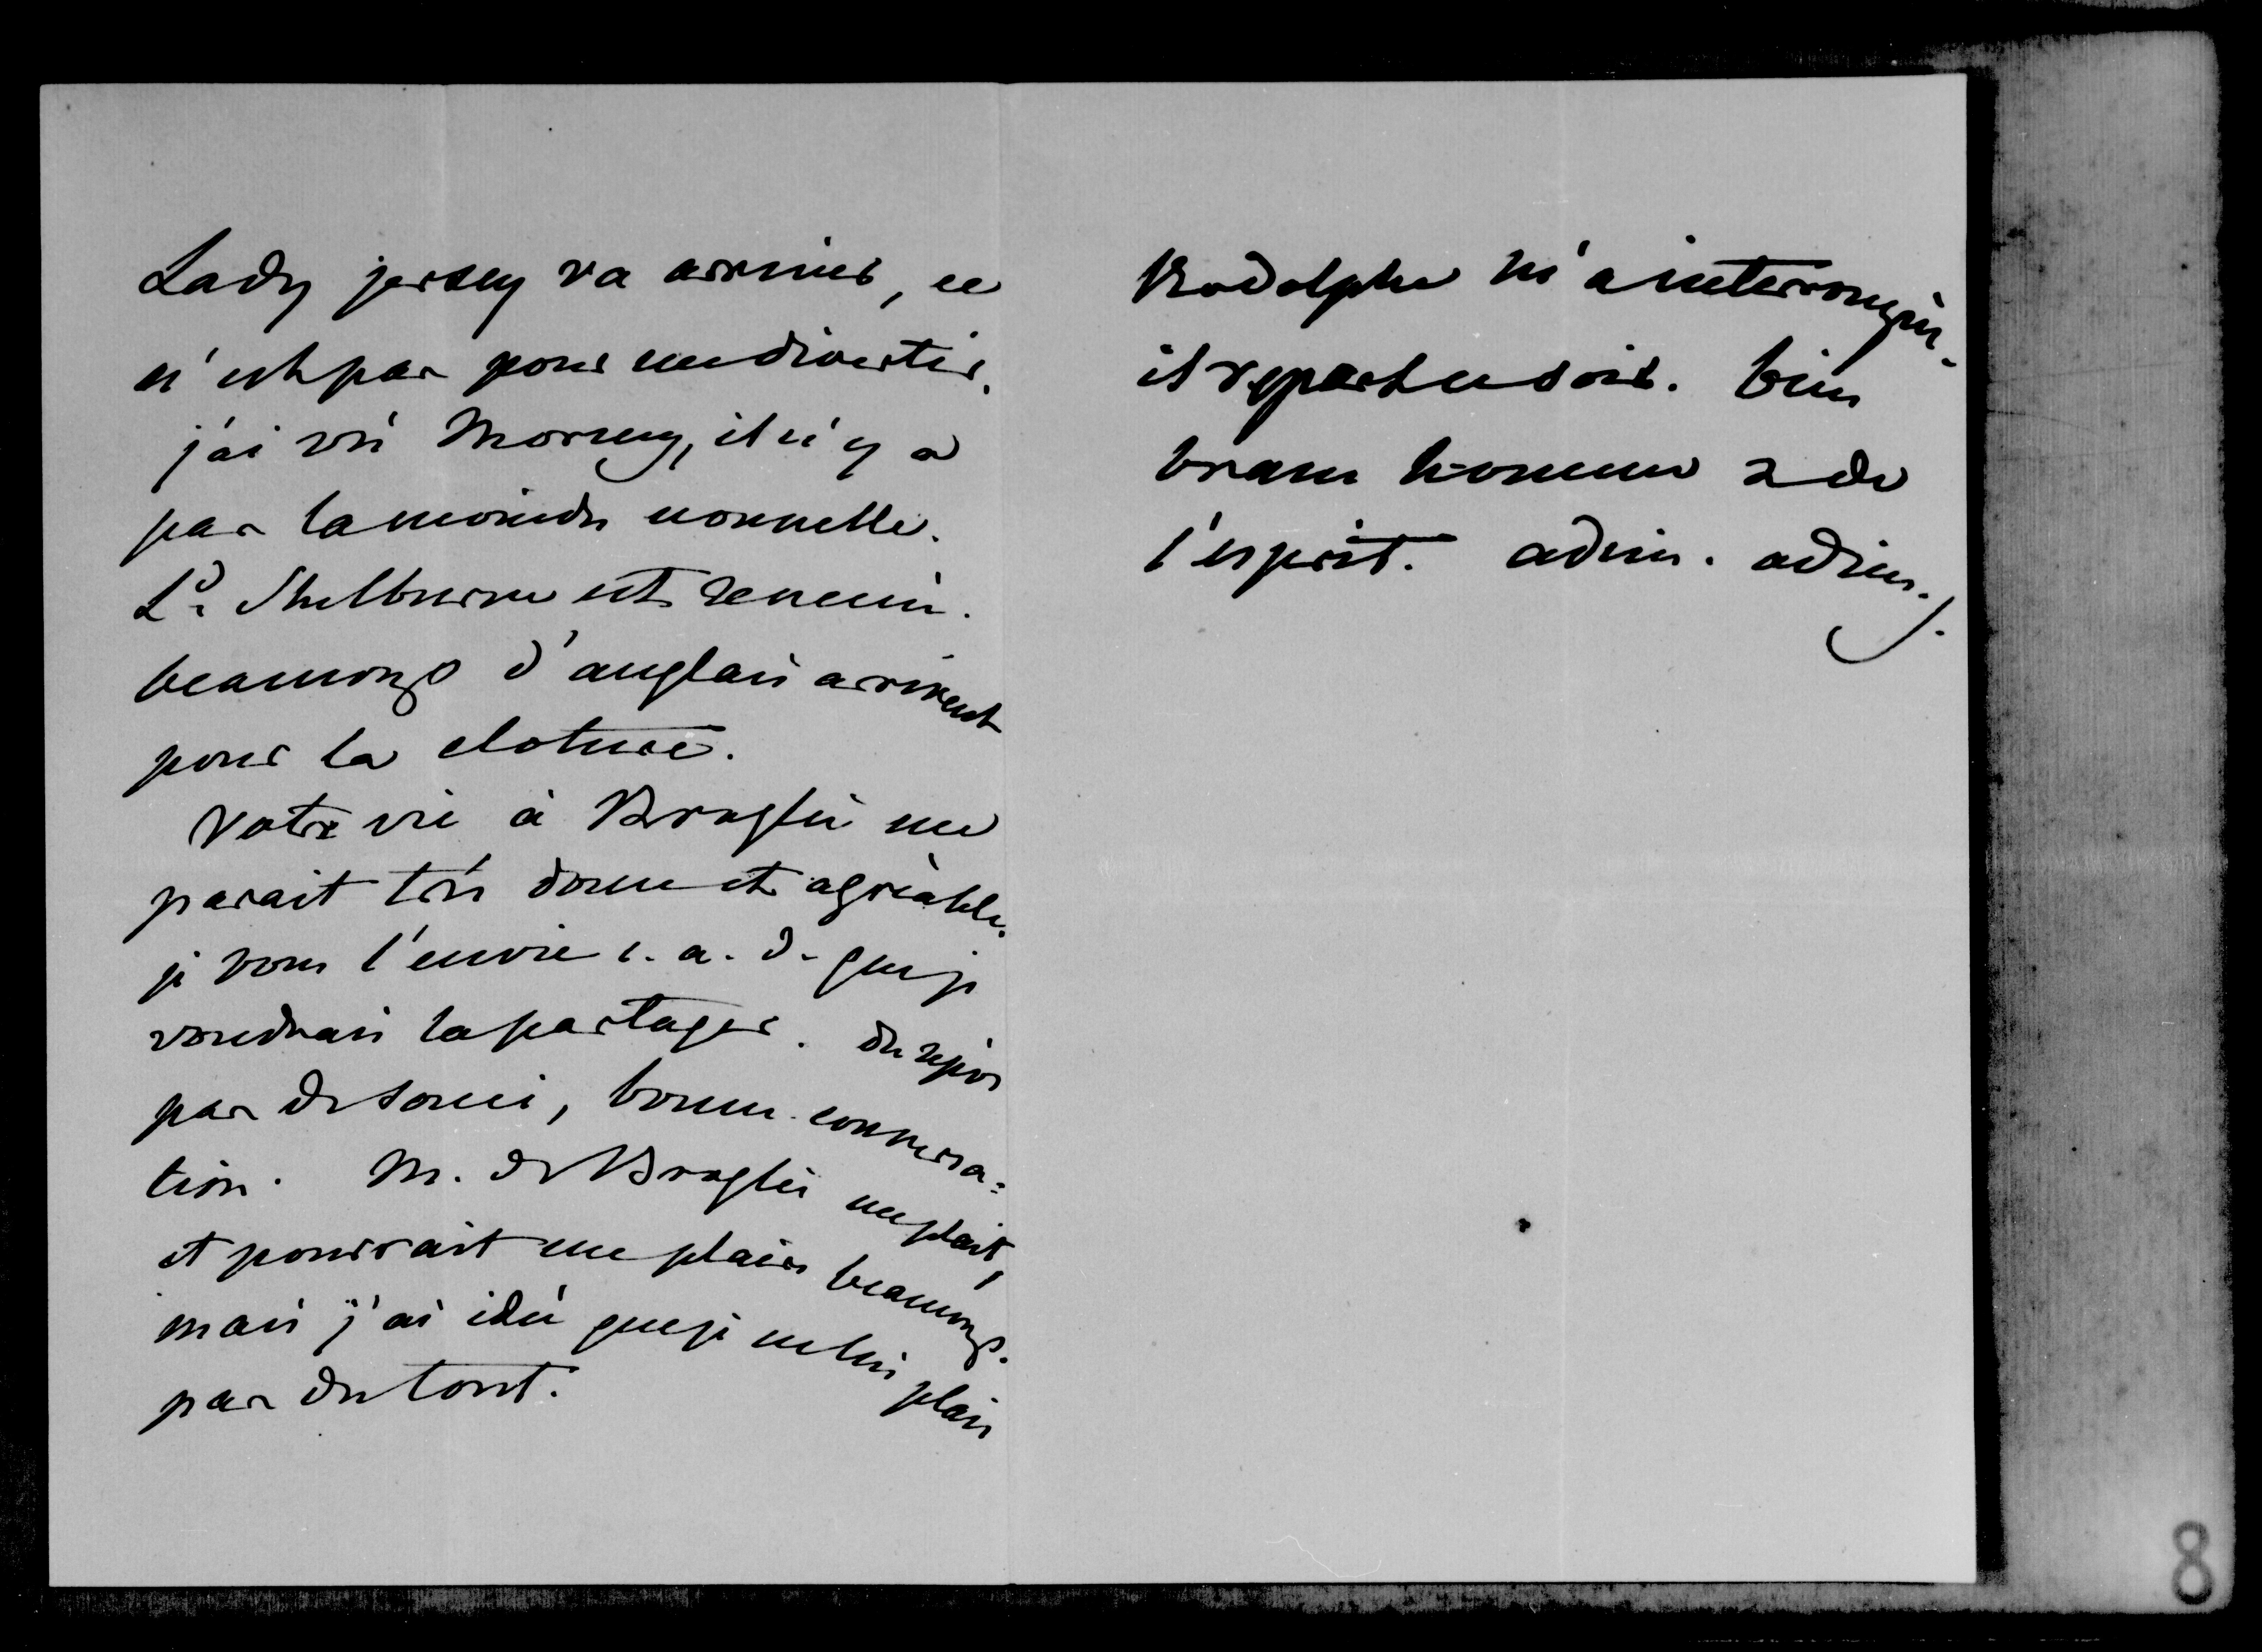 Lady jersey va arriver, ce
n'est pas pour me divertir.
j'ai vû Morny, il n'y a
pas la moindre nouvelle.
Ld Shelburne est revenu.
beaucoup d'anglais arrivent
pour la cloture.
Votre vie à Broglie me
parait très douce et agréable.
je vous l'envie c. a. d. que je
voudrais la partager. du repos
pas de souci, bonne conversa=
tion. M. de Broglie me plait,
et pourrait me plaire beaucoup.
mais j'ai idée que je ne lui plais
pas du tout.
Rodolphe m'a interrompu.
il repart ce soir. bien
brave homme & de
l'esprit. adieu. adieu.